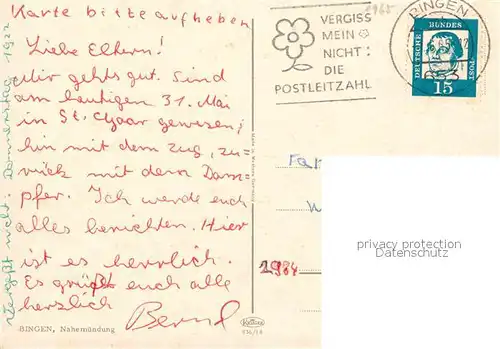 Karte bitte aufheben
Liebe Eltern!
Mir gehts gut. Sind
am heutigen 31. Mai
in St. Goar gewesen;
hin mit dem Zug, zu-
rück mit dem Dam-
pfer. Ich werde euch
alles berichten. Hier
ist es herrlich.
Es grüßt euch alle
herzlich
Bernd
Vergißt nicht: Donnerstag 1922
BINGEN, Nahemündung
1965
VERGISS
MEIN
NICHT:
DIE
POSTLEITZAHL
BINGEN
DEUTSCHE BUNDESPOST
15
privacy protection
Datenschutz
1984